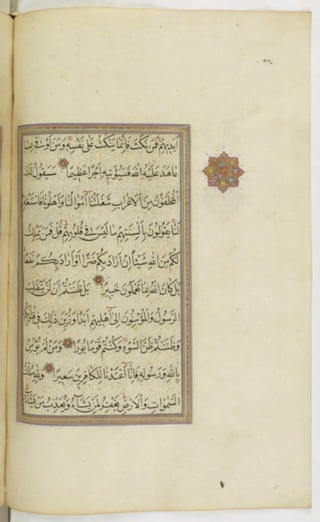 أَيْدِيهِمْ فَمَنْ نَكَثَ فَإِنَّمَا يَنْكُثُ عَلَى نَفْسِهِ وَمَنْ أَوْفَى بِمَا
عَاهَدَ عَلَيْهُ اللهَ فَسَيُؤْتِيهِ أَجْرًا عَظِيمًا سَيَقُولُ لَكَ
الْمُخَلَّفُونَ مِنَ الْأَعْرَابِ شَغَلَتْنَا أَمْوَالُنَا وَأَهْلُونَا فَاسْتَغْفِرْ
لَنَا يَقُولُونَ بِأَلْسِنَتِهِمْ مَا لَيْسَ فِي قُلُوبِهِمْ قُلْ فَمَنْ يَمْلِكُ
لَكُمْ مِنَ اللهِ شَيْئًا إِنْ أَرَادَ بِكُمْ ضَرًّا أَوْ أَرَادَ بِكُمْ نَفْعًا
بَلْ كَانَ اللهُ بِمَا تَعْمَلُونَ خَبِيرًا بَلْ ظَنَنْتُمْ أَنْ لَنْ يَنْقَلِبَ
الرَّسُولُ وَالْمُؤْمِنُونَ إِلَى أَهْلِيهِمْ أَبَدًا وَزُيِّنَ ذَلِكَ فِي قُلُوبِكُمْ
وَظَنَنْتُمْ ظَنَّ السَّوْءِ وَكُنْتُمْ قَوْمًا بُورًا وَمَنْ لَمْ يُؤْمِنْ
بِاللهِ وَرَسُولِهِ فَإِنَّا أَعْتَدْنَا لِلْكَافِرِينَ سَعِيرًا وَلِلهِ مُلْكُ
السَّمَوَاتِ وَالْأَرْضِ يَغْفِرُ لِمَنْ يَشَاءُ وَيُعَذِّبُ مَنْ يَشَاءُ